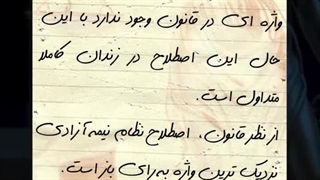 واژه ای در قانون وجود ندارد با این
حال این اصطلاح در زندان کاملا
متداول است.
از نظر قانون، اصطلاح نظام نیمه آزادی
نزدیک ترین واژه به رای باز است.